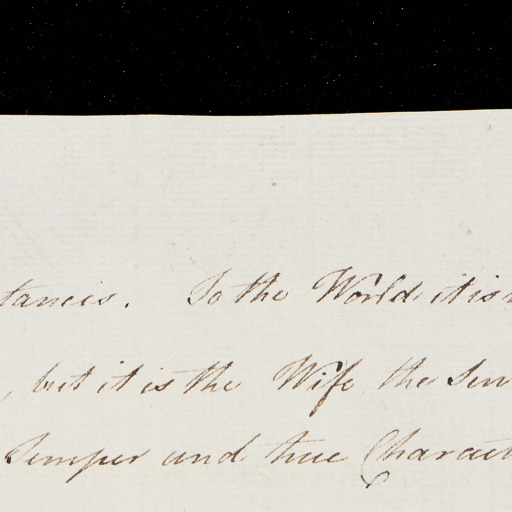 tances. To the World it is
, but it is the Wife, the Serv
Temper and true Charact